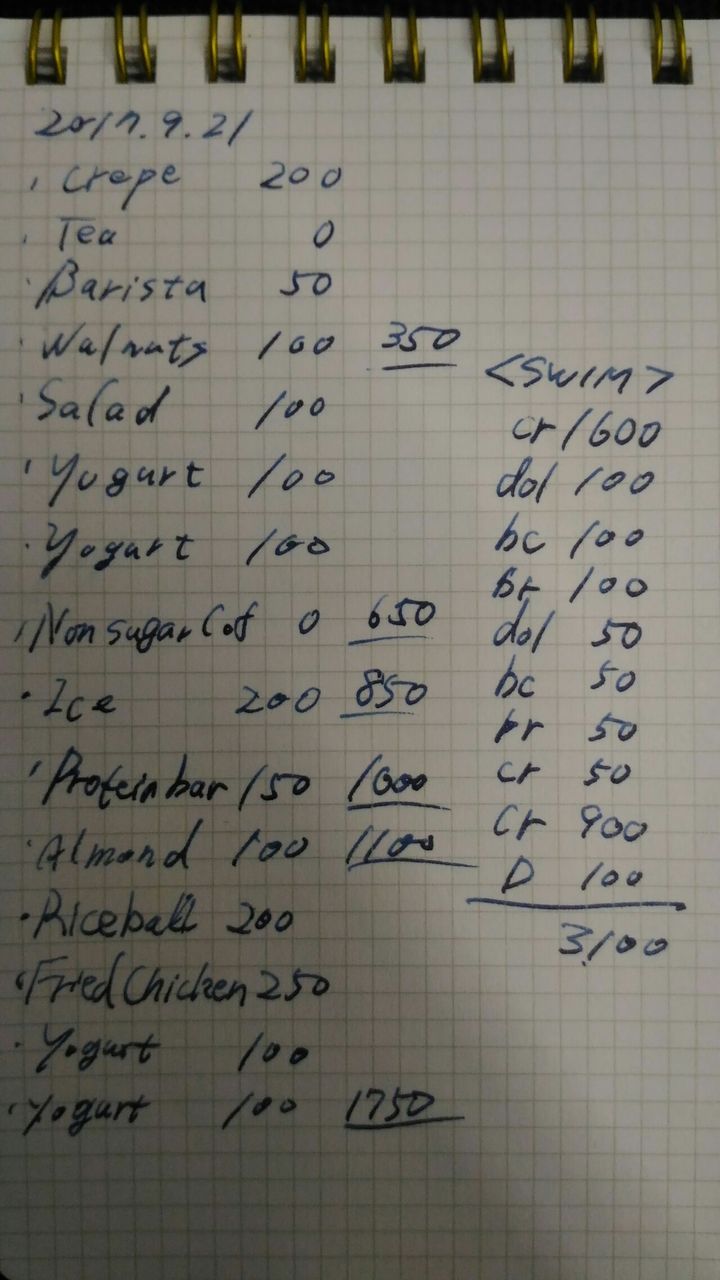 2017.9.21
· Crepe 200
· Tea 0
· Barista 50
· Walnuts 100 350
· Salad 100
· Yogurt 100
· Yogurt 100
· Nonsugar Cof 0 650
· Ice 200 850
· Proteinbar 150 1000
· Almond 100 1100
· Riceball 200
· Fried Chicken 250
· Yogurt 100
· Yogurt 100 1750
<SWIM>
cr 1600
dol 100
bc 100
br 100
dol 50
bc 50
br 50
cr 50
Cr 900
D 100
3,100